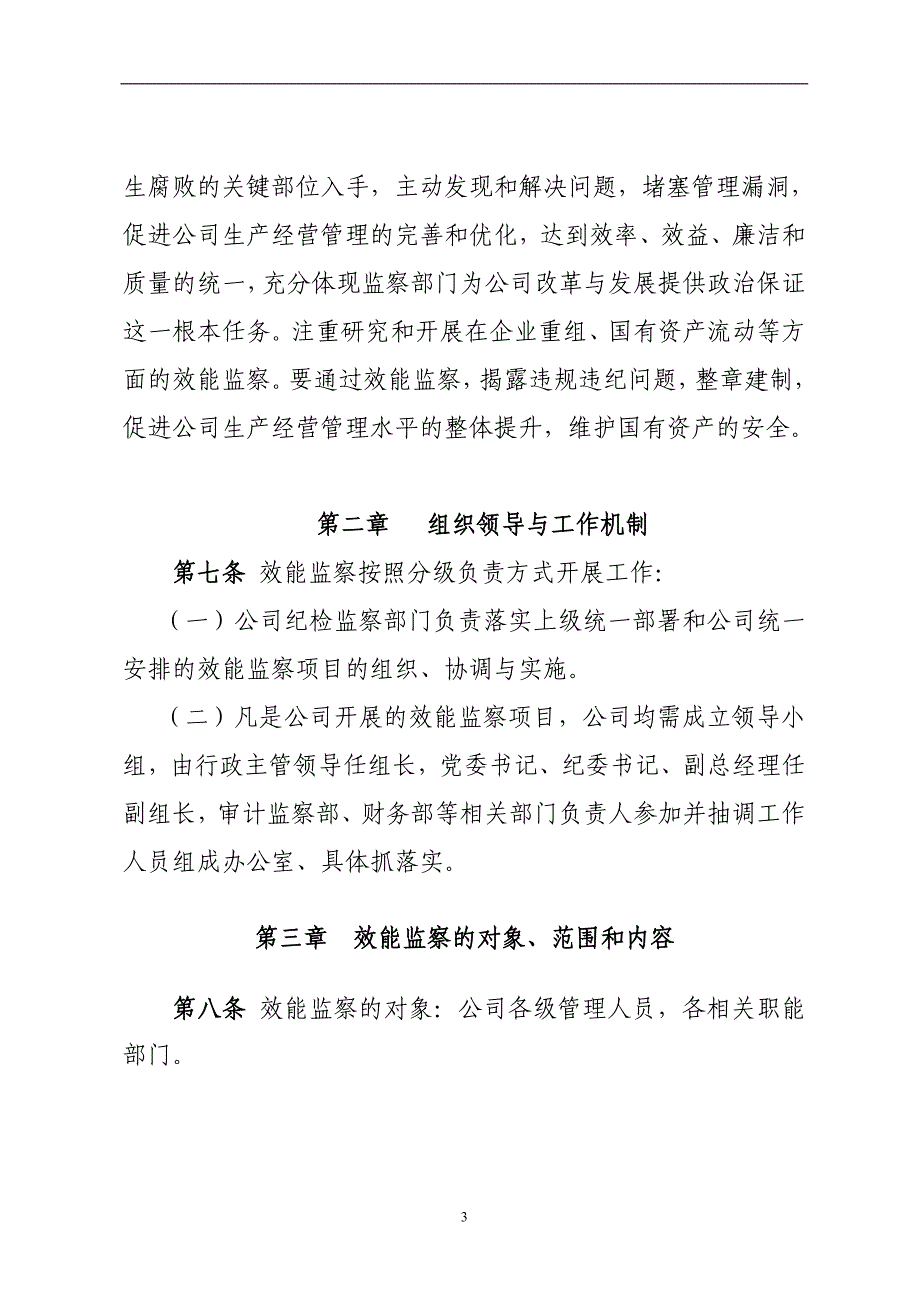 生腐败的关键部位入手，主动发现和解决问题，堵塞管理漏洞，
促进公司生产经营管理的完善和优化，达到效率、效益、廉洁和
质量的统一，充分体现监察部门为公司改革与发展提供政治保证
这一根本任务。注重研究和开展在企业重组、国有资产流动等方
面的效能监察。要通过效能监察，揭露违规违纪问题，整章建制，
促进公司生产经营管理水平的整体提升，维护国有资产的安全。
第二章 组织领导与工作机制
第七条 效能监察按照分级负责方式开展工作：
（一）公司纪检监察部门负责落实上级统一部署和公司统一
安排的效能监察项目的组织、协调与实施。
（二）凡是公司开展的效能监察项目，公司均需成立领导小
组，由行政主管领导任组长，党委书记、纪委书记、副总经理任
副组长，审计监察部、财务部等相关部门负责人参加并抽调工作
人员组成办公室、具体抓落实。
第三章 效能监察的对象、范围和内容
第八条 效能监察的对象：公司各级管理人员，各相关职能
部门。
3